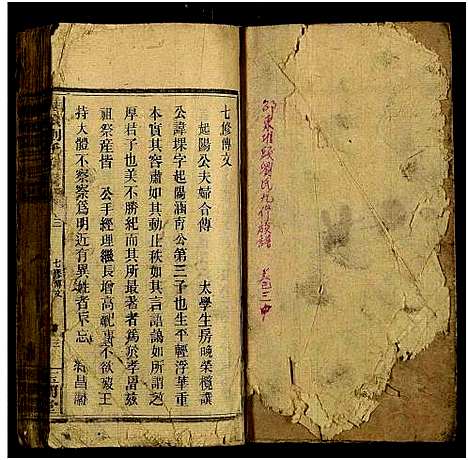 邵東堆頭劉氏九修族譜
卷三中
七修傳文
起陽公夫婦合傳
太學生房晚榮欖譔
公諱埰字起陽涵育公第三子也生平輕浮華重
本實其容肅如其動止秩如其言語謁如所謂之
厚君子也美不勝紀而其所最著者為於孝思茲
祖祭産皆 公手經理繼長增高視事不欲竣工
持大體不察察爲明近有異姓者不忘
七修傳文
三